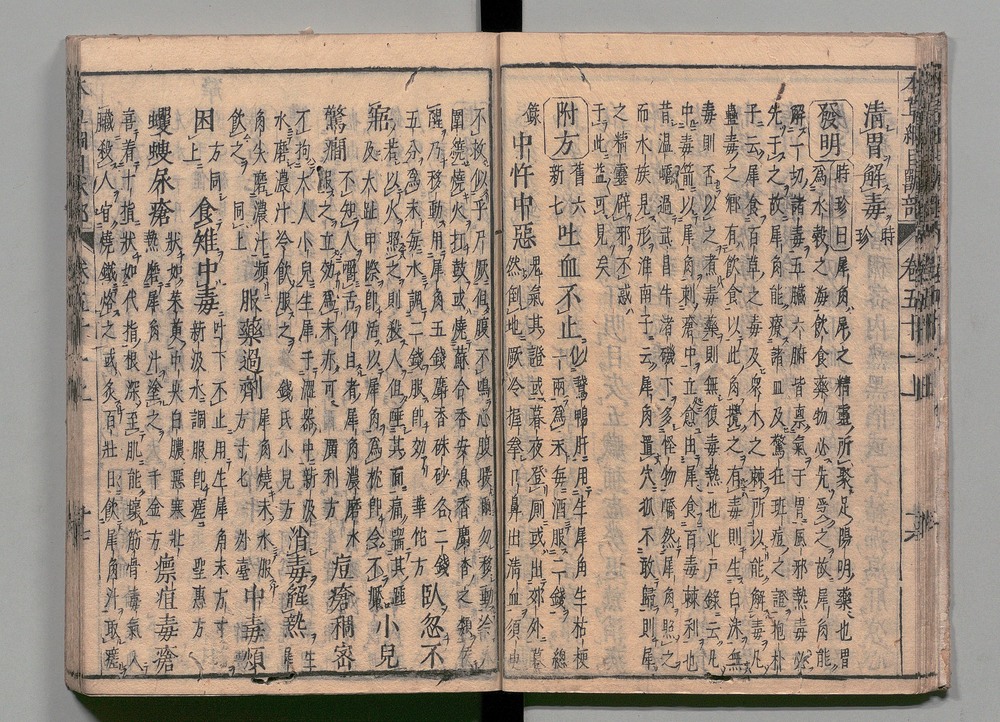 清胃解毒 時珍
發明 時珍曰犀角犀之精靈所聚足陽明藥也胃
爲水穀之海飲食藥物必先受之故犀角能
解一切諸毒五臟六腑皆稟氣于胃風邪熱毒必
先干之故犀角能療諸血及驚狂斑痘之證抱朴
子云犀食百草之毒及眾木之棘所以能解毒凡
蠱毒之鄉有飲食以此角攪之有毒則生白沫無
毒則否以之煮毒藥則無復毒熱也北戶錄云凡
中毒箭以犀角刺瘡中立愈由犀食百毒棘刺也
昔溫嶠過武昌牛渚磯下多怪物嶠然犀角照之
而水族見形淮南子云犀角置穴狐不敢歸則犀
之精靈辟邪不惑
于此益可見矣
附方 舊六新七 吐血不止 似鵝鴨肝用生犀角生桔梗
六兩爲末每酒服二錢 總
錄 中忤中惡 鬼氣其證或暮夜登厠或出郊外驀
然倒地厥冷握拳口鼻出清血須
不救似乎尸厥但腹不鳴心腹暖爾勿移動令
圍繞燒火打鼓或燒蘇合香安息香麝香之類
醒乃移動用犀角五錢麝香硃砂各二錢
五分爲末每水調二錢服即效 華佗方 臥忽不
寤 若以火照之則殺人但唾其面痛嚙其踵
及大趾甲際即活以犀角爲枕即令不魘 小兒
驚癇 不知人嚼舌仰目者犀角濃磨水
服之立效爲末亦可 廣利方 痘瘡稠密
不拘大人小兒生犀于澀器中新汲
水磨濃汁冷飲服之 錢氏小兒方 消毒解熱 生犀
角尖磨濃汁頻
飲之 同上 服藥過劑 犀角燒末水服
方寸七 外臺 中毒煩
困 方同上 食雉中毒 吐下不止用生犀角末方寸
新汲水調服即瘥 聖惠方
蠼螋尿瘡 狀如茱萸中央白膿惡寒壯
熱磨犀角汁塗之 千金方 瘭疽毒瘡
喜著十指狀如代指根深至肌能壞筋骨毒氣入
臟殺人宜燒鐵烙之或灸百壯日飲犀角汁取瘥